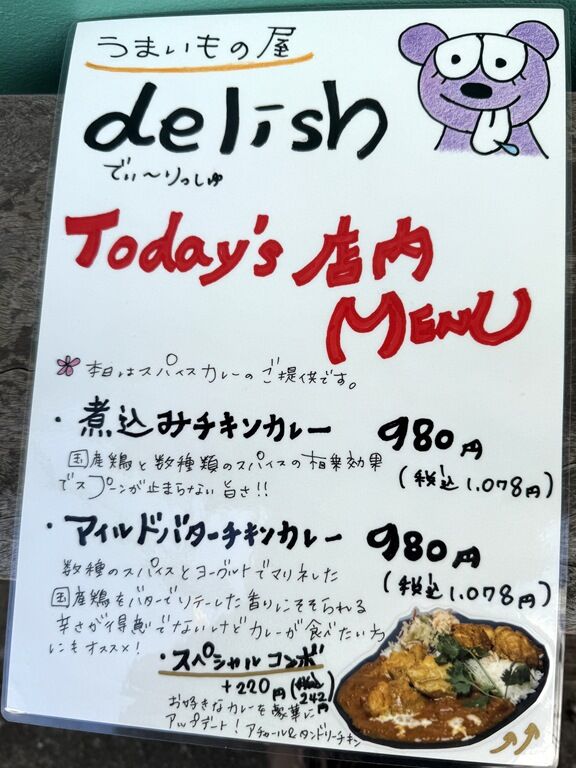 うまいもの屋
delish
でぃ〜りっしゅ
Today's 店内
MENU
本日はスパイスカレーのご提供です。
・煮込みチキンカレー 980円
国産鶏と数種類のスパイスの相乗効果
(税込1.078円)
でスプーンが止まらない旨さ!!
・マイルドバターチキンカレー 980円
数種のスパイスとヨーグルトでマリネした
(税込1.078円)
国産鶏をバターでソテーした香りにそそられる
辛さが得意でないけどカレーが食べたい方
にもオススメ!
・スペシャルコンボ
+220円(税込242円)
お好きなカレーを豪華に
アップデート!アチャール&タンドリーチキン